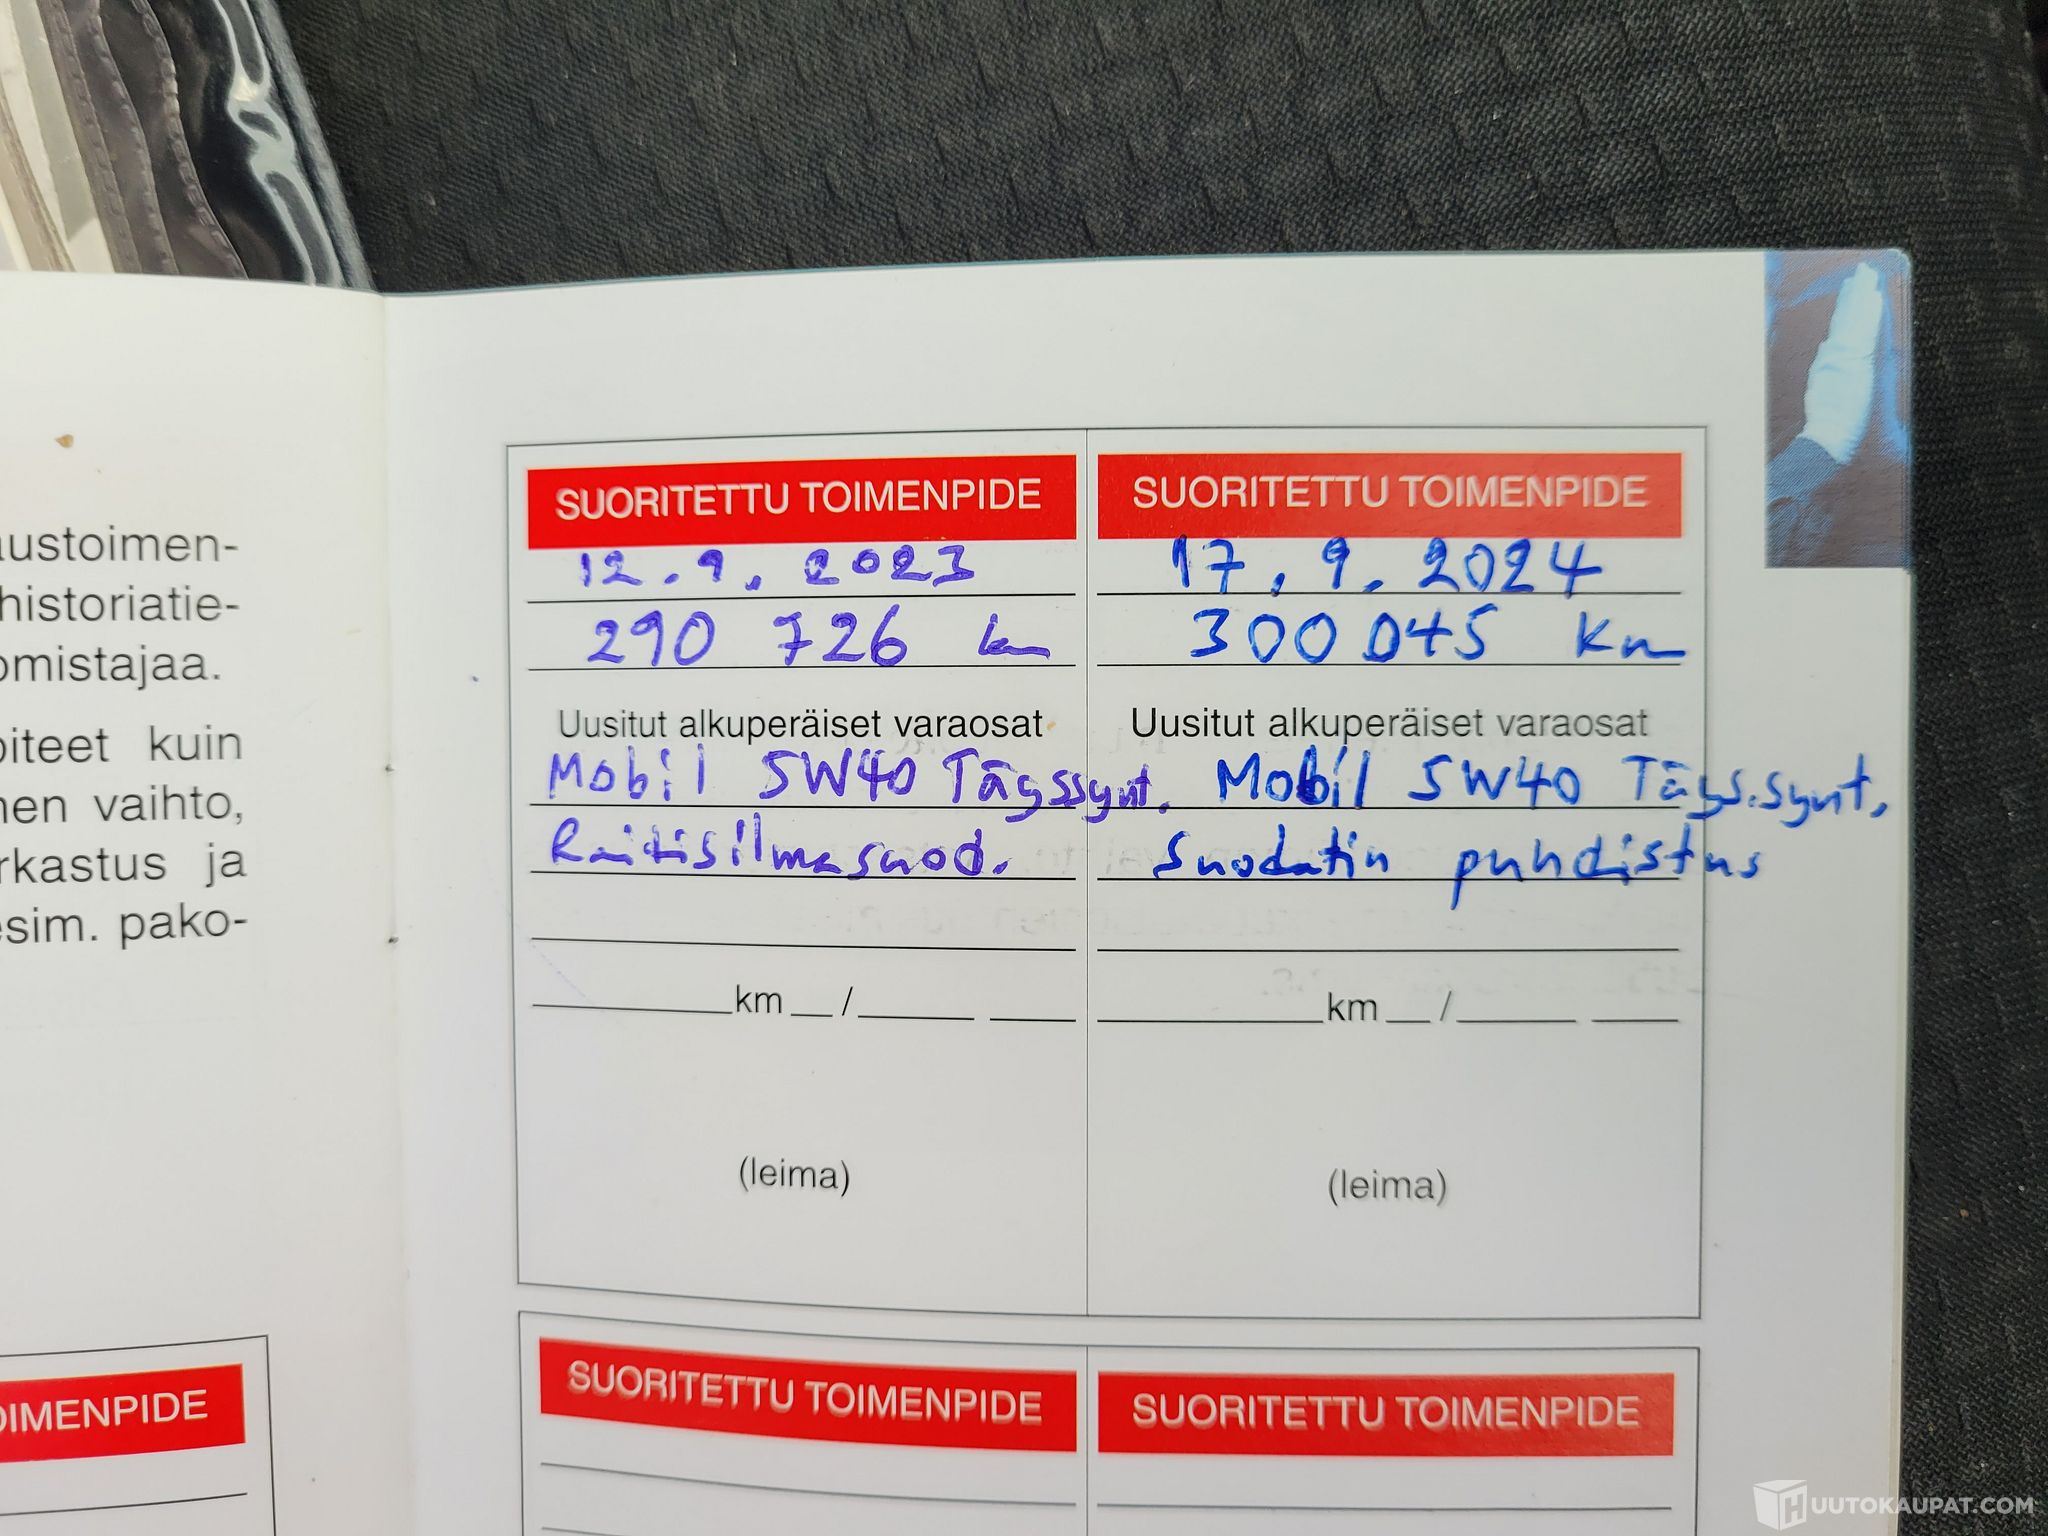 austoimen-
historiatie-
omistajaa.
oiteet kuin
nen vaihto,
rkastus ja
esim. pako-
OIMENPIDE
SUORITETTU TOIMENPIDE
12.9.2023
290 726 km
Uusitut alkuperäiset varaosat
Mobil 5W40 Täyssynt.
Raitisilmasuod.
km /
(leima)
SUORITETTU TOIMENPIDE
17.9.2024
300 045 km
Uusitut alkuperäiset varaosat
Mobil 5W40 Täys.synt.
Suodatin puhdistus
km /
(leima)
SUORITETTU TOIMENPIDE
SUORITETTU TOIMENPIDE
HUUTOKAUPAT.COM